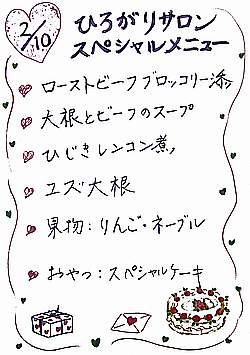 2/10
ひろがりサロン
スペシャルメニュー
ローストビーフブロッコリー添え
大根とビーフのスープ
ひじきレンコン煮
ユズ大根
果物:りんご・ネーブル
おやつ:スペシャルケーキ